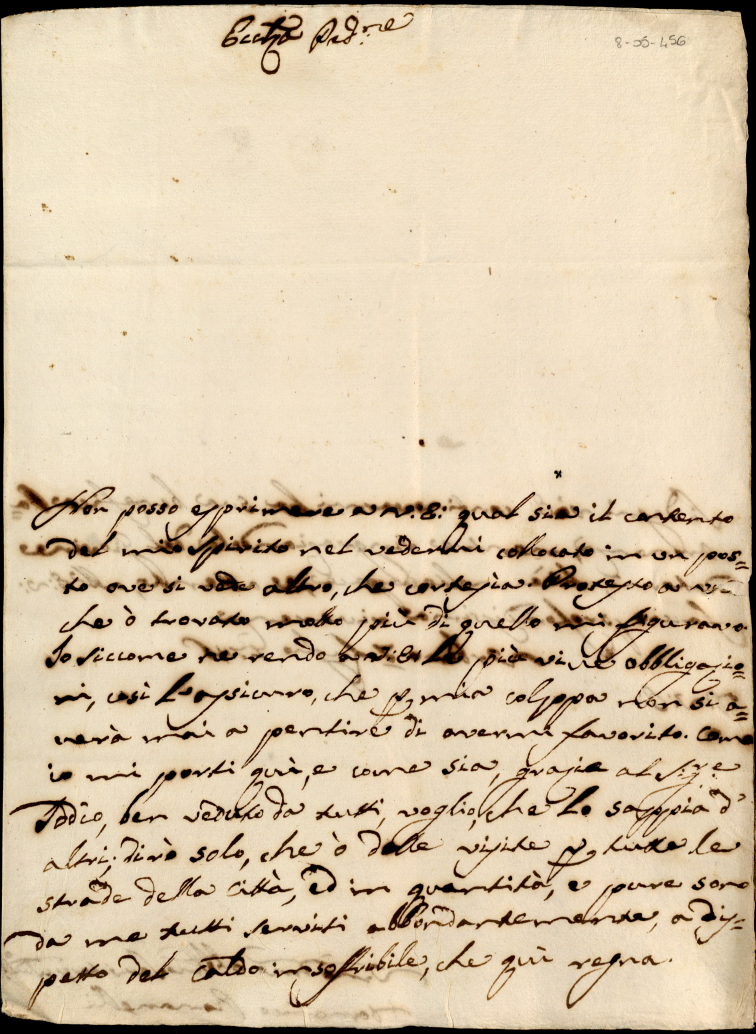 Ecc:za Pad:ne
8-55-456
Non posso esprimere a V: E: qual sia il contento
del mio spirito nel vedermi collocato in un pos=
to ove si vede altro, che cortesia. Protesto a V: E:
che ò trovato molto più di quello mi figuravo.
Io siccome ne rendo a V: E: le più vive obbligazio=
ni, così l'assicuro, che p mia colppa non si a=
verà mai a pentire di avermi favorito. Come
io mi porti quì, e come sia, grazie al Sig:re
Iddio, ben veduto da tutti, voglio, che lo sappia d'
altri; dirò solo, che ò delle visite p tutte le
strade della Città, ed in quantità, e pure sono
da me tutti serviti abbondantemente, a dis=
petto del caldo insoffribile, che quì regna.